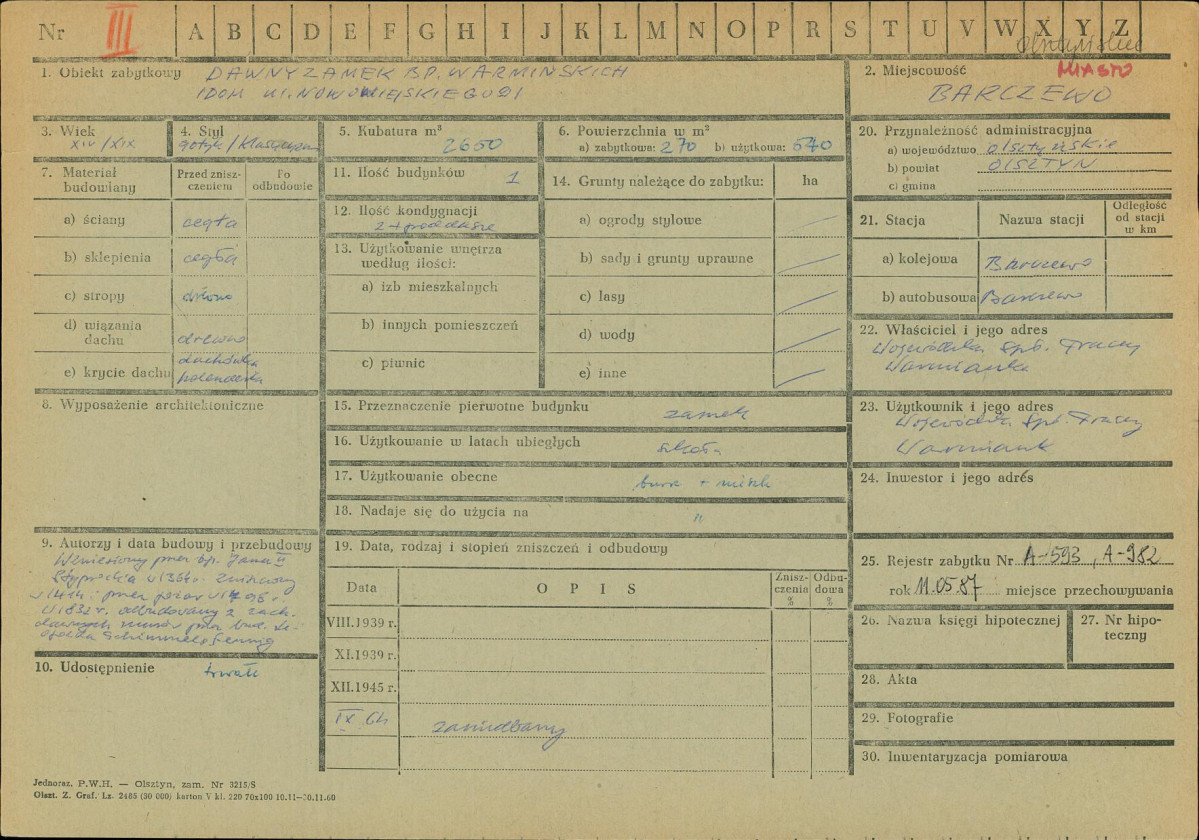 Nr III A B C D E F G H I J K L M N O P R S T U V W X Y Z
1. Obiekt zabytkowy DAWNY ZAMEK BP. WARMIŃSKICH
/DOM UL. NOWOWIEJSKIEGO 91
2. Miejscowość MIASTO
BARCZEWO
3. Wiek
XIV/XIX
4. Styl
gotyk/klasycyzm
5. Kubatura m³
2650
6. Powierzchnia w m²
a) zabytkowa: 270 b) użytkowa: 540
7. Materiał budowlany
Przed zniszczeniem
Po odbudowie
a) ściany cegła
b) sklepienia cegła
c) stropy drewno
d) wiązania dachu drewno
e) krycie dachu dachówka
holenderka
8. Wyposażenie architektoniczne
9. Autorzy i data budowy i przebudowy
Wzniesiony przez bp. Jana II
Stryprocka w 1364 r. zniszczony
w 1414 i przez pożar w 1798 r.
W 1832 r. odbudowany z zach.
dawnych murów przez bud. Le-
opolda Schimmelpfennig
10. Udostępnienie trwałe
11. Ilość budynków 1
12. Ilość kondygnacji
2 + poddasze
13. Użytkowanie wnętrza
według ilości:
a) izb mieszkalnych
b) innych pomieszczeń
c) piwnic
14. Grunty należące do zabytku: ha
a) ogrody stylowe
b) sady i grunty uprawne
c) lasy
d) wody
e) inne
15. Przeznaczenie pierwotne budynku zamek
16. Użytkowanie w latach ubiegłych szkoła
17. Użytkowanie obecne biura + mieszk
18. Nadaje się do użycia na "
19. Data, rodzaj i stopień zniszczeń i odbudowy
Data OPIS Zniszczenia % Odbudowa %
VIII.1939 r.
XI.1939 r.
XII.1945 r.
IX 64 zaniedbany
20. Przynależność administracyjna
a) województwo olsztyńskie
b) powiat OLSZTYN
c) gmina
21. Stacja Nazwa stacji Odległość od stacji w km
a) kolejowa Barczewo
b) autobusowa Barczewo
22. Właściciel i jego adres
Wojewódzka Spł. Pracy
Warmianka
23. Użytkownik i jego adres
Wojewódzka Spł. Pracy
Warmianka
24. Inwestor i jego adres
25. Rejestr zabytku Nr A-593, A-982
rok 11.05.87 miejsce przechowywania
26. Nazwa księgi hipotecznej
27. Nr hipoteczny
28. Akta
29. Fotografie
30. Inwentaryzacja pomiarowa
Jednoraz. P.W.H. — Olsztyn, zam. Nr 3215/S
Olszt. Z. Graf. Lz. 2488 (30 000) karton V kl. 220 70x100 10.11—30.11.60